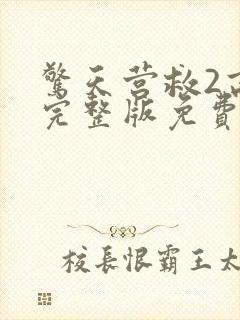 驚天营救2
完整版免費
校長恨霸王太